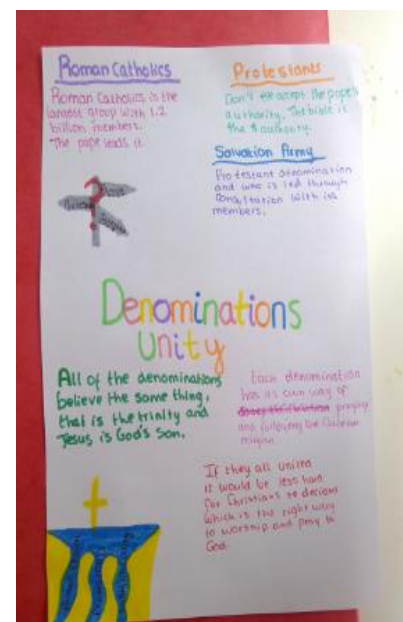 Roman Catholics
Roman Catholics is the
largest group with 1.2
billion members.
The pope leads it.
Protestants
Don't accept the pope's
authority. The bible is
the authority.
Salvation Army
Protestant denomination
and who is led through
Consultation with its
members.
Denominations
Unity
All of the denominations
believe the same thing,
that is the trinity and
Jesus is God's Son.
Each denomination
has its own way of
praying
and following the Christian
religion.
If they all united
it would be less hard
for Christians to decide
which is the right way
to worship and pray to
God.